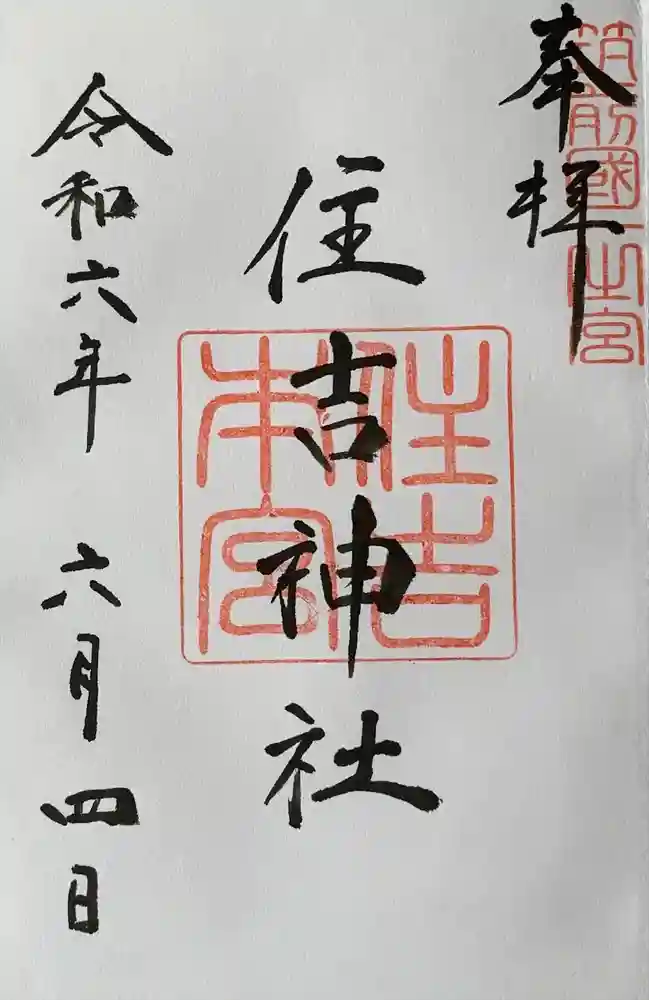 奉拝
筑前國一之宮
住吉神社
住吉
本宮
令和六年 六月四日